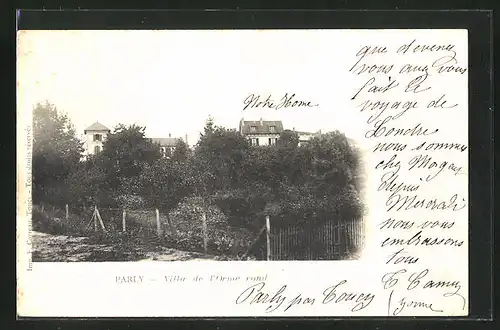 que devenez
vous avez vous
fait le
voyage de
Londre
nous sommes
chez
depuis
Mercredi
nous vous
embrassons
tous
Notre Home
PARLY — Villa de l'Orme rond
Parly par Toucy
(Yonne)